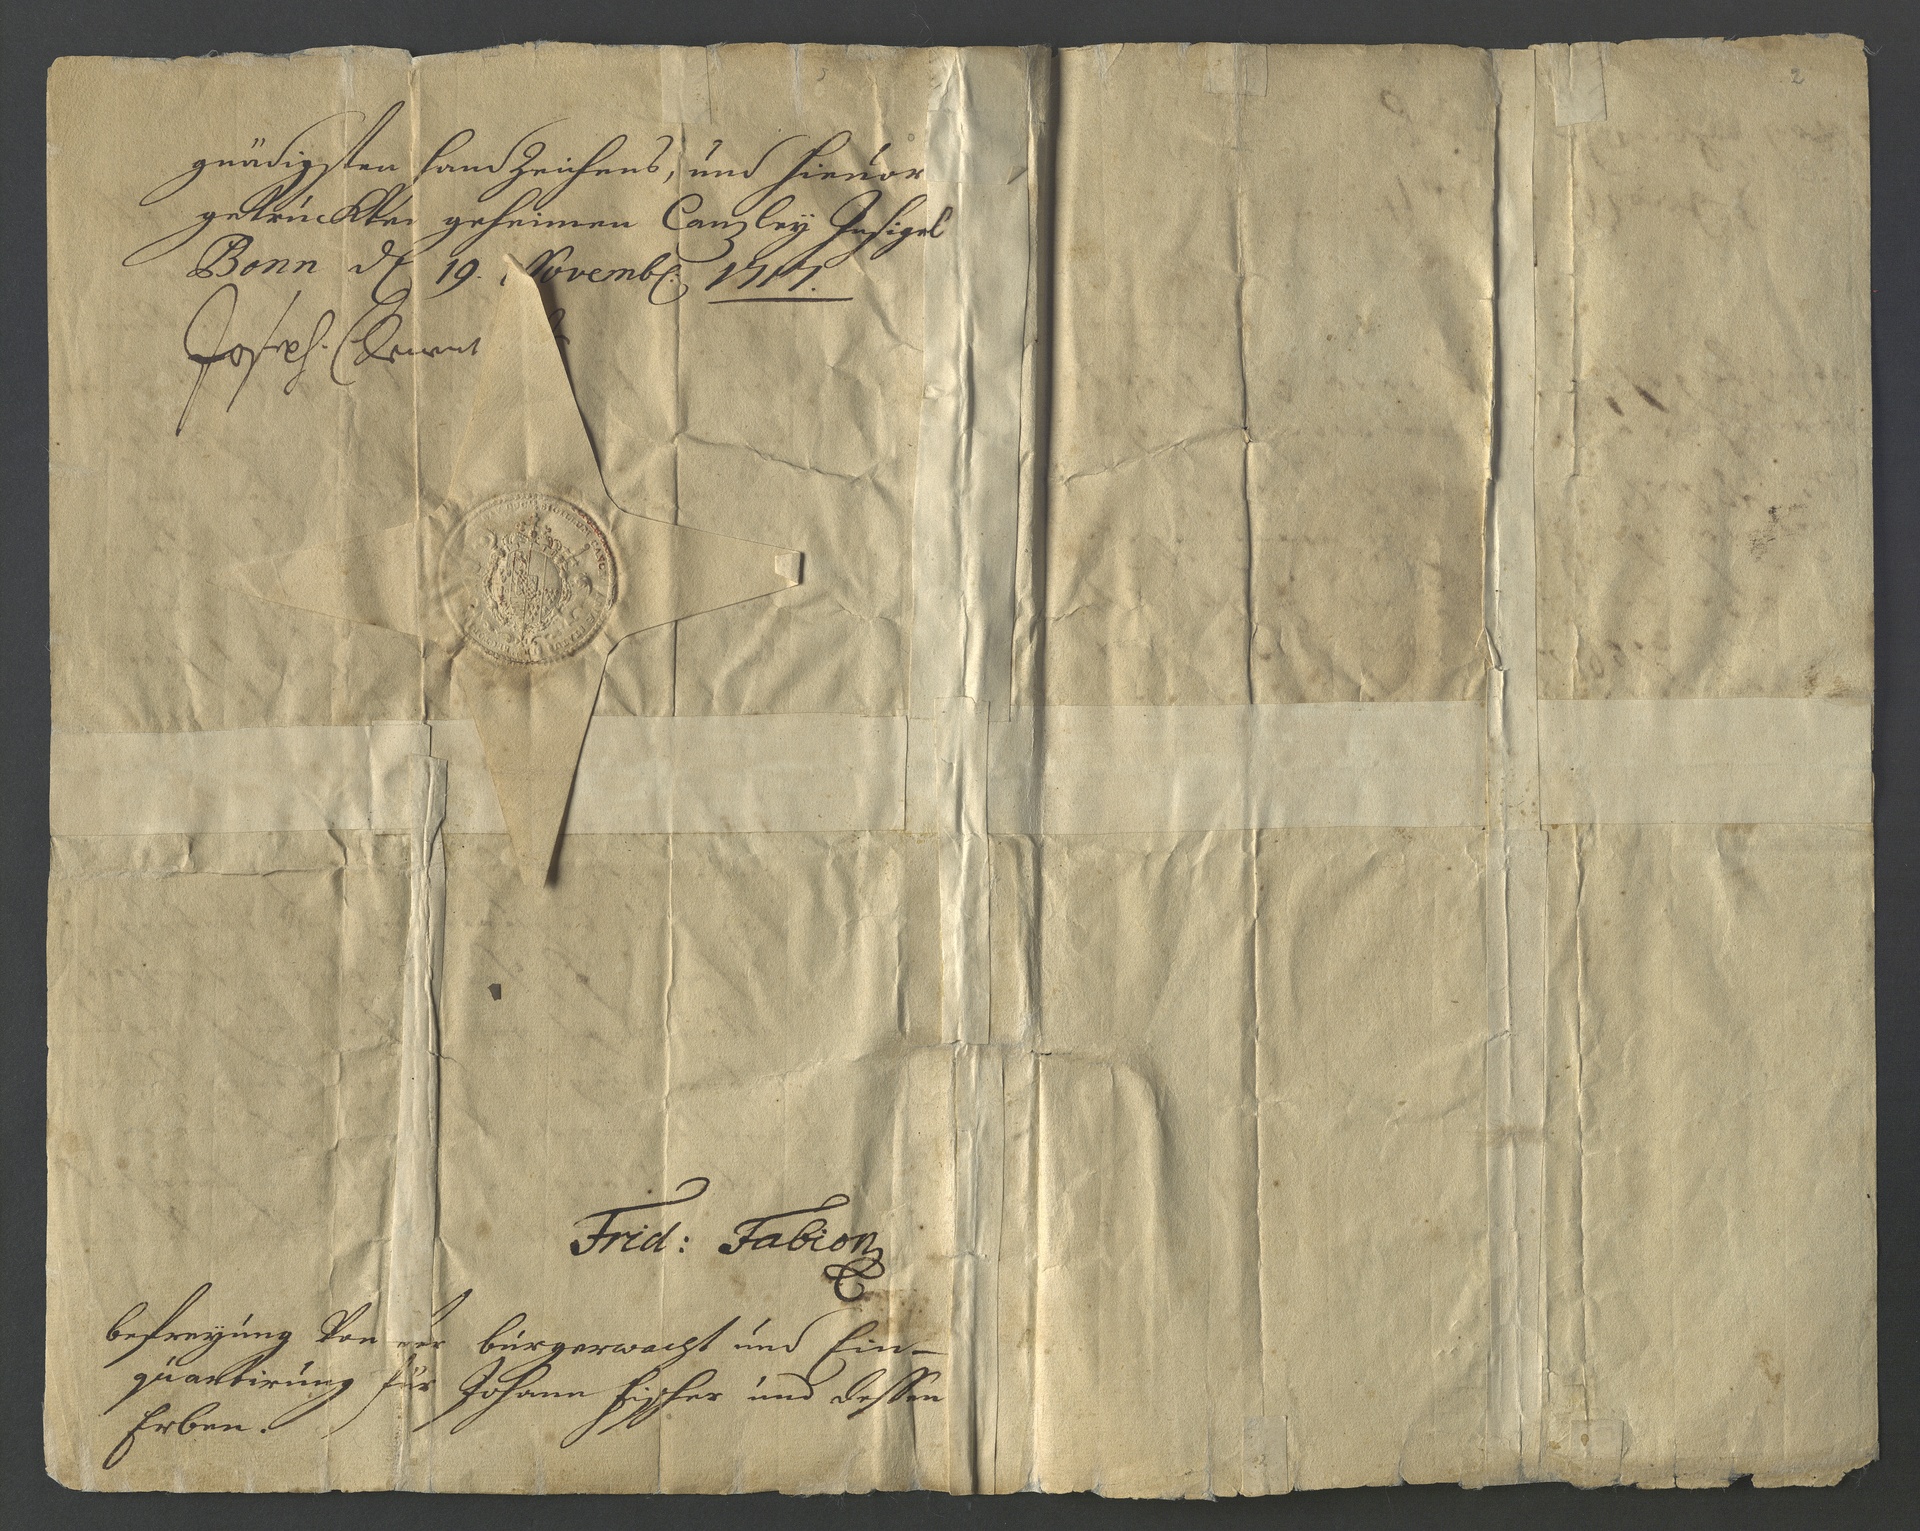 2
gnädigsten handzeichens, und hiervor
getrückten geheimen Canzley Insigel
Bonn d 19. Novemb: 1717.
Joseph Clement
Frid: Fabion
befreyung Von der bürgerwacht und Ein-
quartirung für Johann fischer und dessen
Erben.